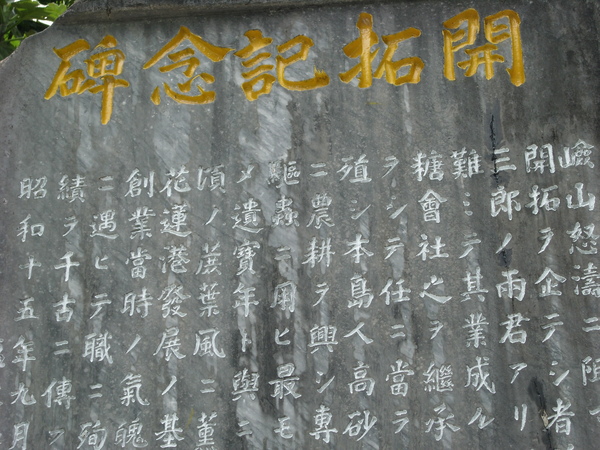 開拓記念碑
嶮山怒濤ニ阻
開拓ヲ企テシ者
三郎ノ両君アリ
難ミテ其業成ル
糖會社之ヲ繼承
ヲシテ任ニ當ラ
殖シ本島人高砂
ニ農耕ヲ興シ専
驅蟲ニ用ヒ最モ
メ遺寶年ト與ニ
頃ノ蔗葉風ニ薫
花蓮港發展ノ基
創業當時ノ氣魄
ニ遇ヒテ職ニ殉
績ヲ千古ニ傳フ
昭和十五年九月